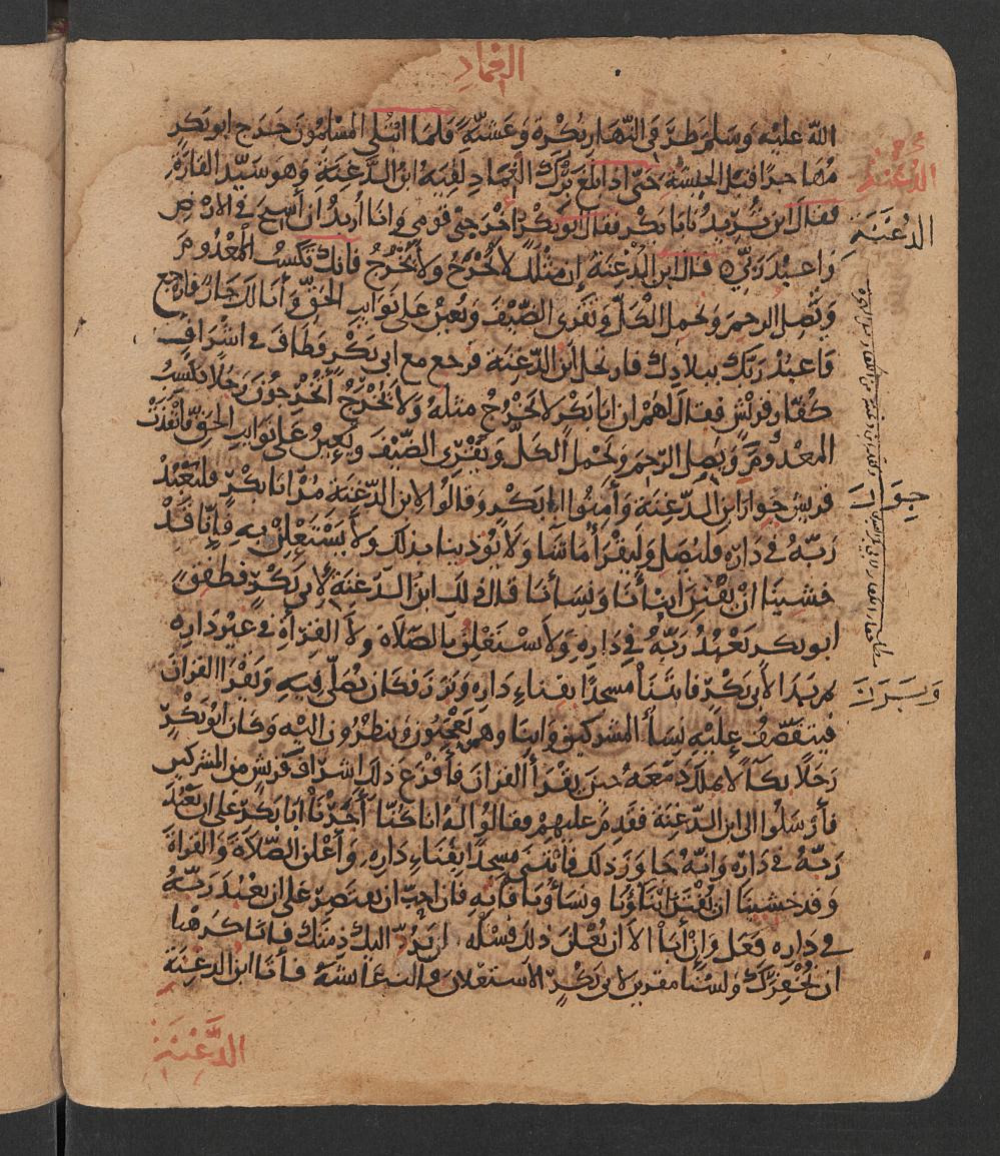 الغماد
الله عليه وسلم طرفي النهار بكرة وعشية فلما ابتلي المسلمون خرج ابو بكر
مهاجرا قبل الحبشة حتى اذا بلغ برك الغماد لقيه ابن الدغنة وهو سيد القارة
فقال اين تريد يا ابا بكر فقال ابو بكر اخرجني قومي وانا اريد ان اسيح في الارض
واعبد ربي قال ابن الدغنة إن مثلك لا يخرج ولا يخرج فانك تكسب المعدوم
وتصل الرحم وتحمل الكل وتقري الضيف وتعين على نوايب الحق وانا لك جار فارجع
فاعبد ربك ببلادك فارتحل ابن الدغنة فرجع مع ابي بكر فطاف في اشراف
كفار قريش فقال لهم ان ابا بكر لا يخرج مثله ولا يخرج أتخرجون رجلا يكسب
المعدوم ويصل الرحم ويحمل الكل ويقري الضيف ويعين على نوايب الحق فانفذت
قريش جوار ابن الدغنة وآمنوا ابا بكر وقالوا لابن الدغنة مر ابا بكر فليعبد
ربه في داره فليصل وليقرأ ما شا ولا يوذينا بذلك ولا يستعلن به فإنا قد
خشينا ان يفتن ابنأنا ونسأنا قال ذلك ابن الدغنة لابي بكر فطفق
ابو بكر يعبد ربه في داره ولا يستعلن بالصلاة ولا القراة في غير داره
ثم بدا لأبي بكر فابتنا مسجدا بفناء داره وبرز فكان يصلي فيه ويقرا القران
فيتقصف عليه نسأ المشركين وابنا وهم يعجبون وينظرون اليه وكان ابو بكر
رجلا بكآ لا يملك دمعه حين يقرأ القران فأفزع ذلك اشراف قريش من المشركين
فأرسلوا الى ابن الدغنة فقدم عليهم فقالوا له انا كنا أجرنا ابا بكر على ان يعبد
ربه في داره وانه جاوز ذلك فابتنى مسجدا بفناء داره وأعلن الصلاة والقراة
وقد خشينا ان يفتن ابناؤنا ونساؤنا فاته فان احب ان يقتصر على ان يعبد ربه
في داره فعل وان أبا الا ان يعلن ذلك فسله ان يرد اليك ذمتك فانا كرهنا
ان نخفرك ولسنا مقرين لابي بكر الاستعلان قالت عايشة فأتا ابن الدغنة
الدغنة
الدغنة
جوار
وبرز
الدغنة